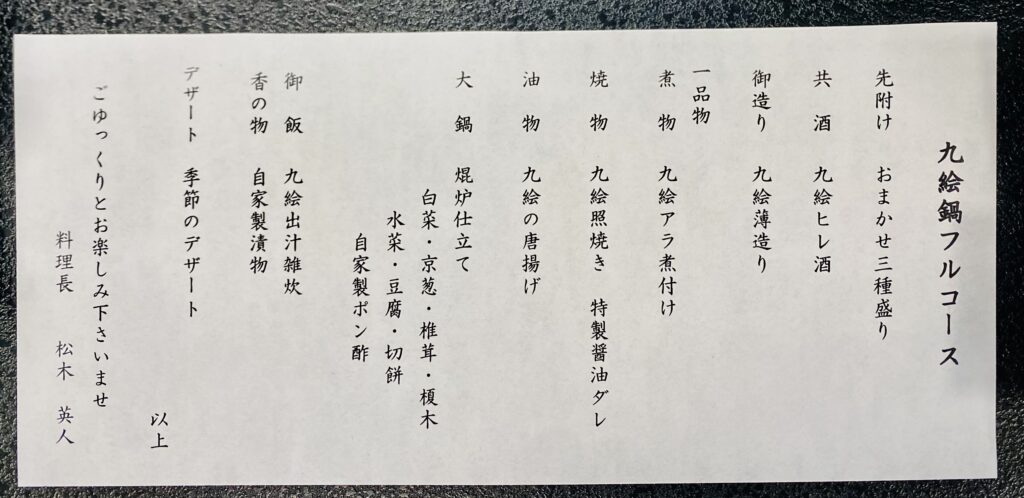 九絵鍋フルコース
先附け　おまかせ三種盛り
共　酒　九絵ヒレ酒
御造り　九絵薄造り
一品物
煮　物　九絵アラ煮付け
焼　物　九絵照焼き　特製醤油ダレ
油　物　九絵の唐揚げ
大　鍋　焜炉仕立て
白菜・京葱・椎茸・榎木
水菜・豆腐・切餅
自家製ポン酢
御　飯　九絵出汁雑炊
香の物　自家製漬物
デザート　季節のデザート
以上
ごゆっくりとお楽しみ下さいませ
料理長　松木　英人